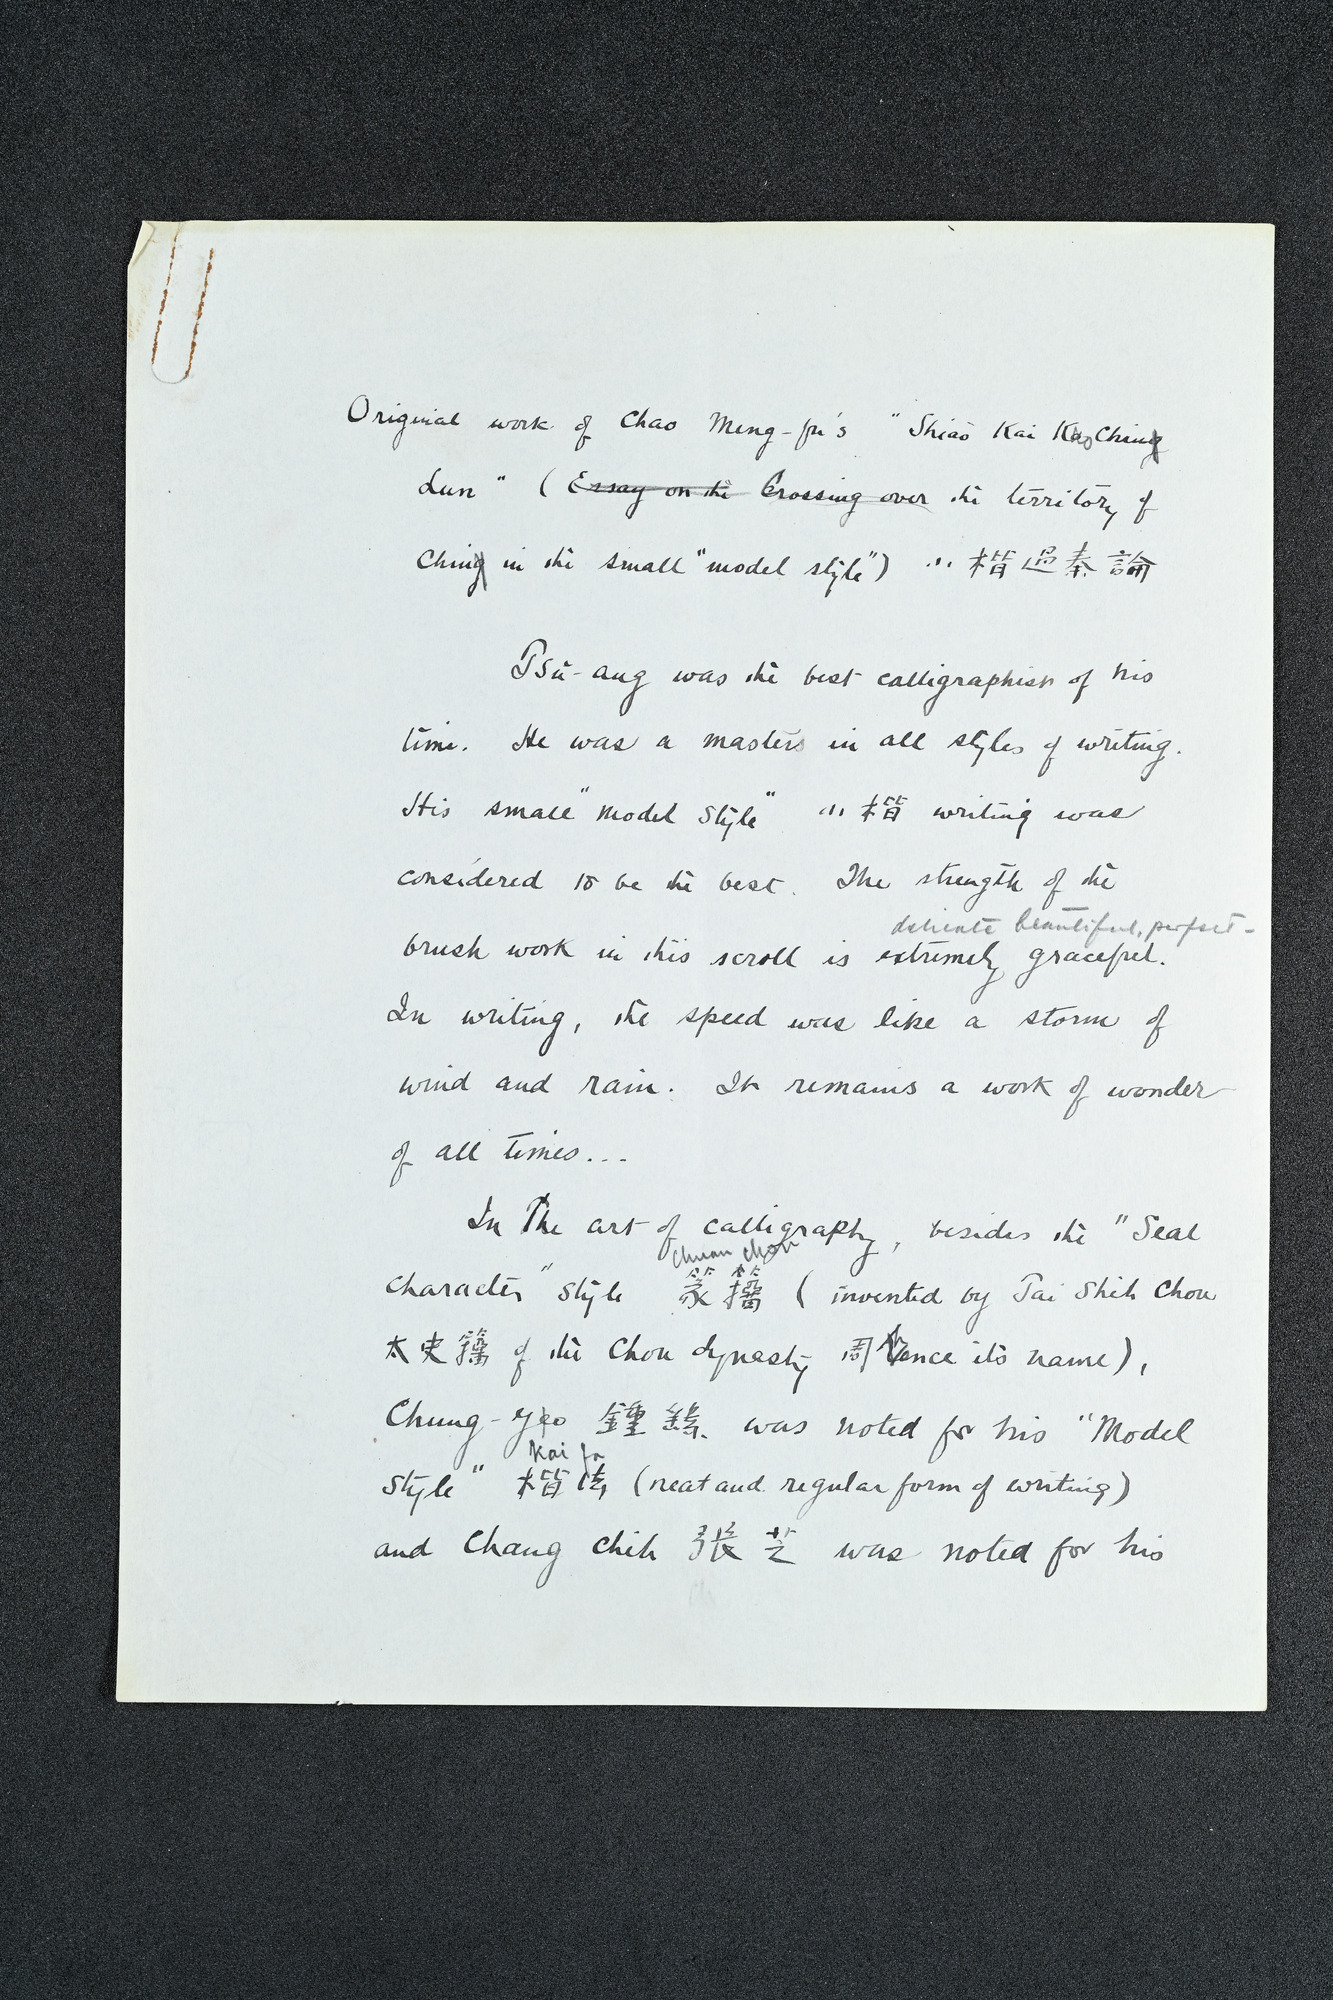 Original work of Chao Meng-fu's "Shiao Kai Kuo Ching
Lun" (Essay on the Crossing over the territory of
Ching in the small "model style") 小楷過秦論
Tsü-ang was the best calligraphist of his
time. He was a masters in all styles of writing.
His small "model style" 小楷 writing was
considered to be the best. The strength of the
delicate beautiful, perfect-
brush work in this scroll is extremely graceful.
In writing, the speed was like a storm of
wind and rain. It remains a work of wonder
of all times...
In the art of calligraphy, besides the "Seal
Chuan chou
character" style 篆籀 (invented by Tai Shih Chou
太史籀 of the Chou dynasty 周 hence its name),
Chung-yao 鍾繇 was noted for his "Model
Kai fa
style" 楷法 (neat and regular form of writing)
and Chang Chih 張芝 was noted for his